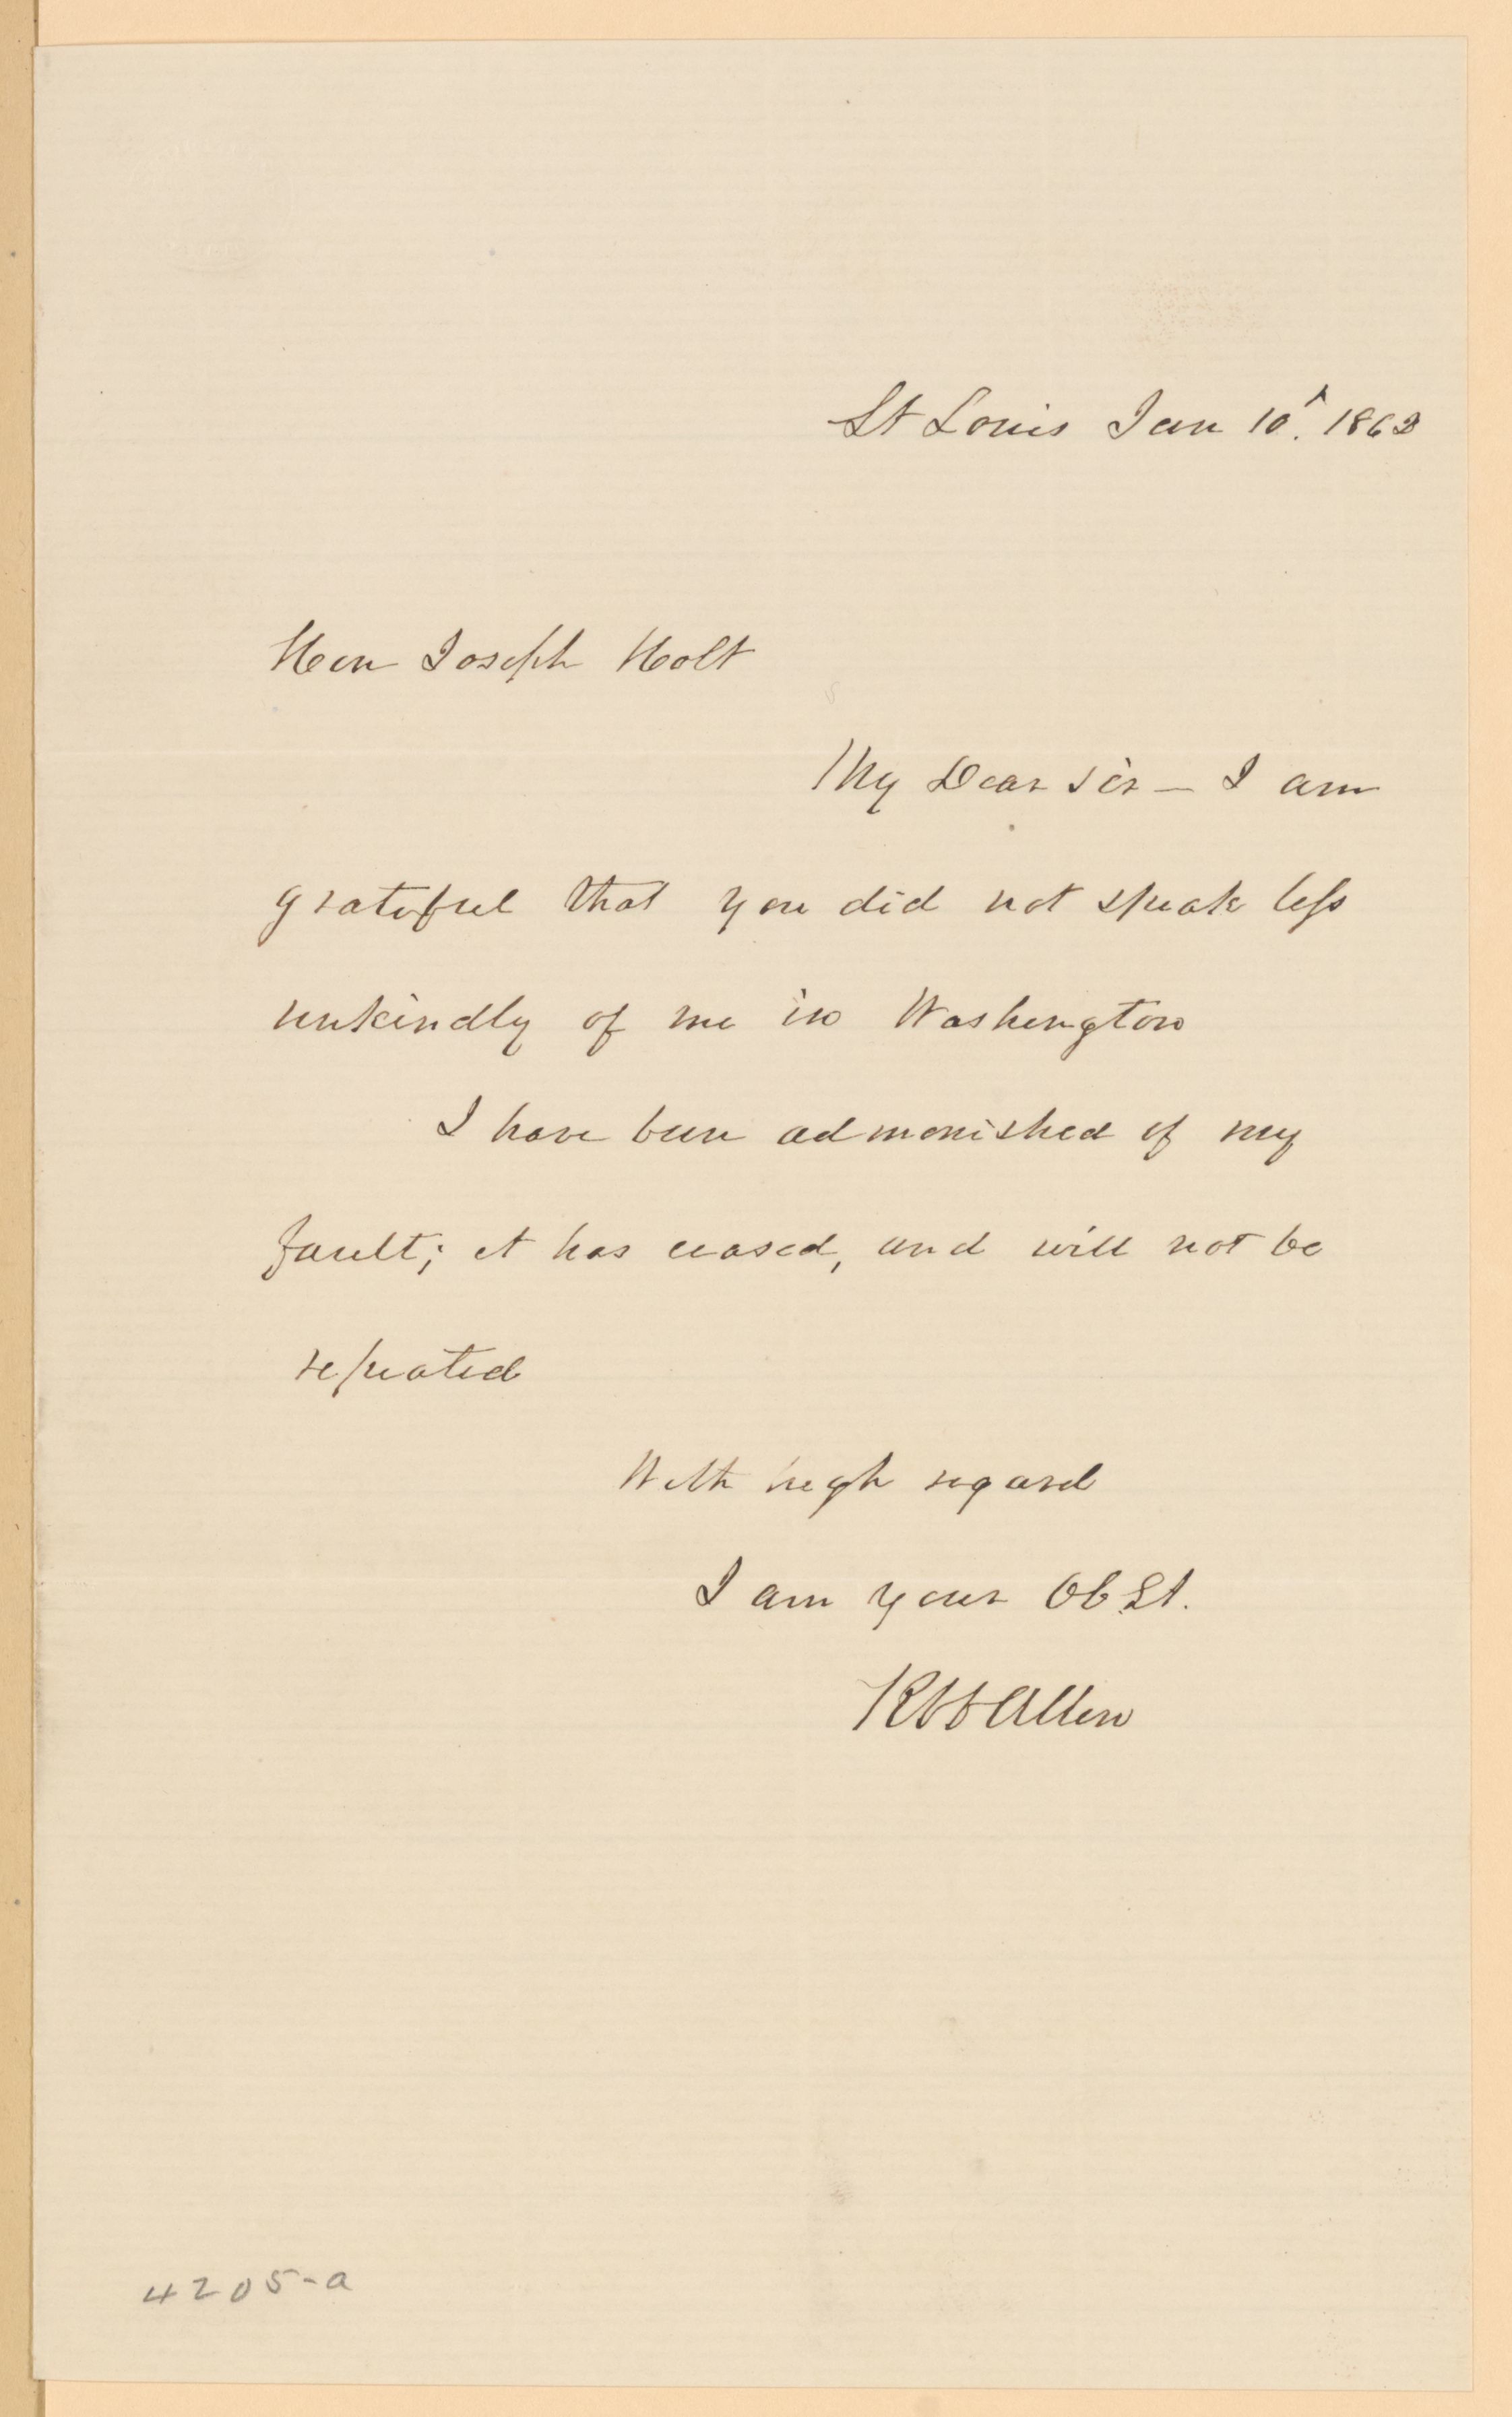 St Louis Jan 10. 1862
Hon Joseph Holt
My Dear sir — I am
grateful that you did not speak less
unkindly of me in Washington
I have been admonished of my
fault; it has ceased, and will not be
repeated
With high regard
I am your Ob St.
R Allen
4205-a